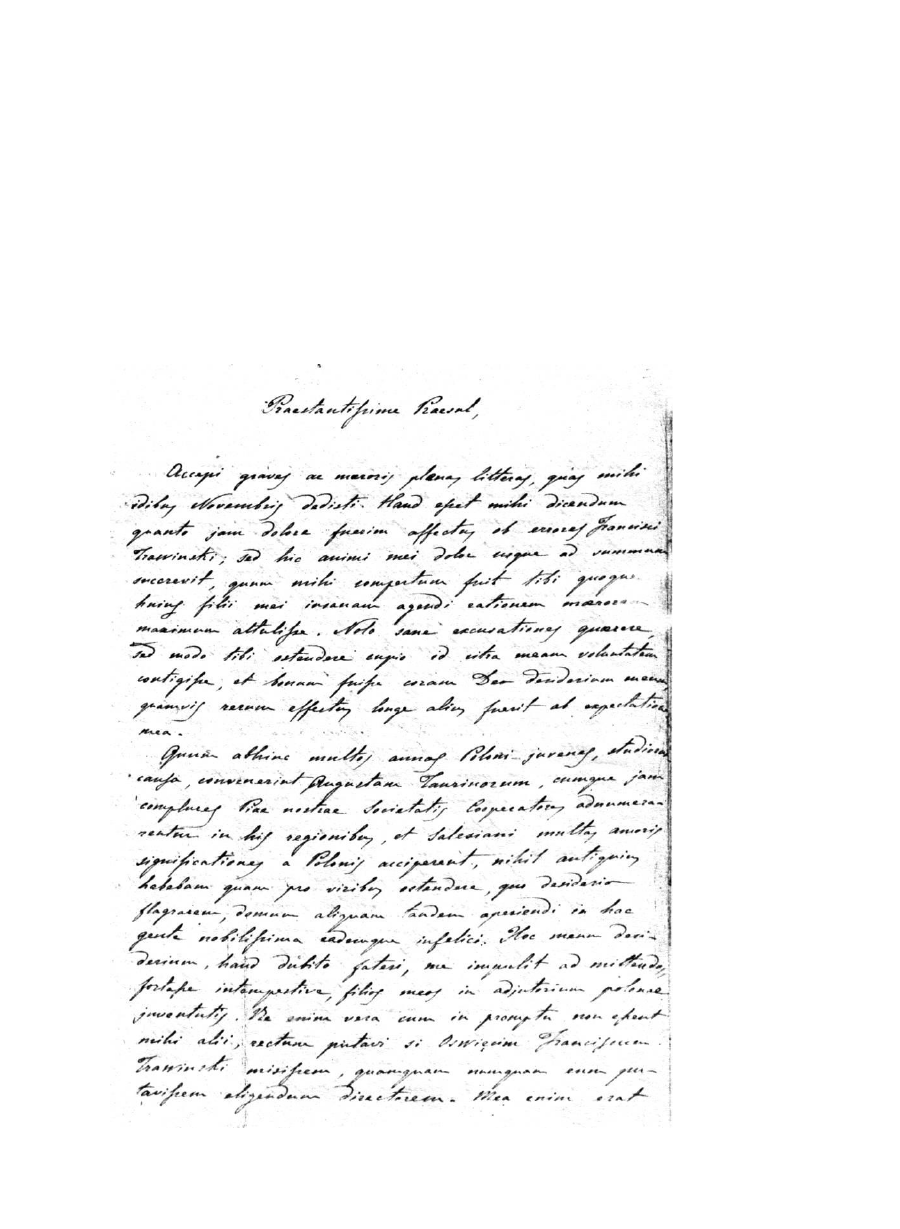 Praestantissime Praesul,
Accepi graves ac maeroris plenas litteras, quas mihi
idibus Novembris dedisti. Haud esset mihi dicendum
quanto jam dolore fuerim affectus ob errores Francisci
Trawinski; sed hic animi mei dolor usque ad summum
succrevit, quum mihi compertum fuit tibi quoque
hujus filii mei insanam agendi rationem maerorem
maximum attulisse. Nolo sane excusationes quaerere,
sed modo tibi ostendere cupio id citra meam voluntatem
contigisse, et bonum fuisse coram Deo desiderium meum,
quamvis rerum effectus longe alius fuerit ab expectatione
mea.
Quum abhinc multos annos Poloni juvenes, studiorum
causa, convenerint Augustam Taurinorum, cumque jam
complures Piae nostrae Societatis Cooperatores adnumera-
rentur in his regionibus, et Salesiani multas amoris
significationes a Polonis acciperent, nihil antiquius
habebam quam pro viribus ostendere, quo desiderio
flagrarem, domum aliquam tandem aperiendi in hac
gente nobilissima eademque infelici. Hoc meum desi-
derium, haud dubito fateri, me impulit ad mittendos,
fortasse intempestive, filios meos in adjutorium polonae
juventutis. Re enim vera cum in promptu non essent
mihi alii, rectum putavi si Oswięcim Franciscum
Trawinski misissem, quamquam numquam eum pu-
tavissem eligendum directorem. Mea enim erat